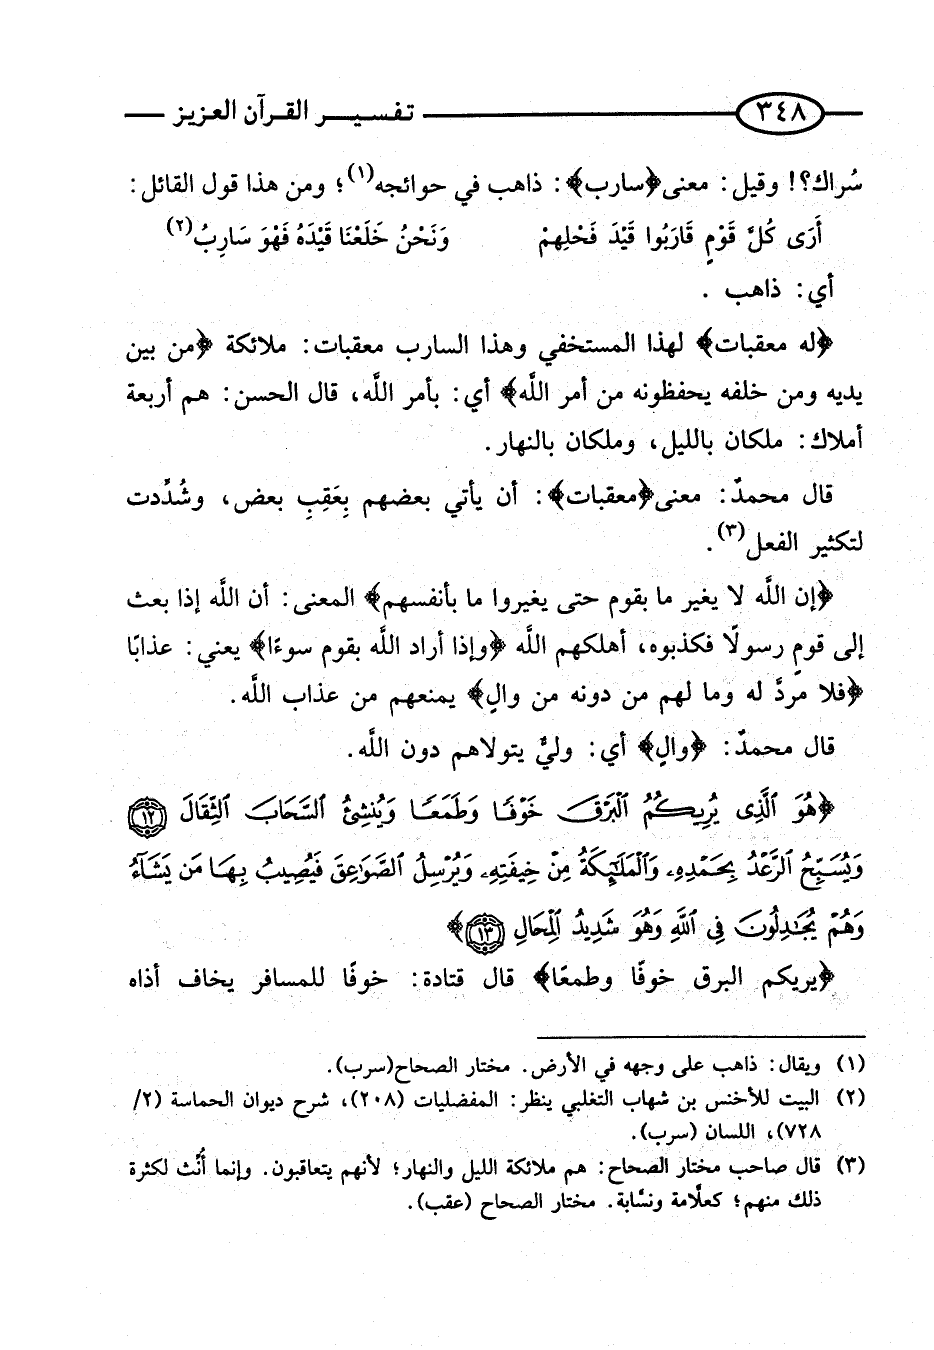 ٣٤٨ تفسير القرآن العزيز
سُراك؟! وقيل: معنى﴿سارب﴾: ذاهب في حوائجه(١)؛ ومن هذا قول القائل:
أَرَى كُلَّ قَوْمٍ قَارَبُوا قَيْدَ فَحْلِهِمْ وَنَحْنُ خَلَعْنَا قَيْدَهُ فَهْوَ سَارِبُ(٢)
أي: ذاهب .
﴿له معقبات﴾ لهذا المستخفي وهذا السارب معقبات: ملائكة ﴿من بين
يديه ومن خلفه يحفظونه من أمر اللَّه﴾ أي: بأمر اللَّه، قال الحسن: هم أربعة
أملاك: ملكان بالليل، وملكان بالنهار.
قال محمدٌ: معنى﴿معقبات﴾: أن يأتي بعضهم بِعَقِبِ بعض، وشُدِّدت
لتكثير الفعل(٣).
﴿إن اللَّه لا يغير ما بقوم حتى يغيروا ما بأنفسهم﴾ المعنى: أن اللَّه إذا بعث
إلى قومٍ رسولًا فكذبوه، أهلكهم اللَّه ﴿وإذا أراد اللَّه بقوم سوءًا﴾ يعني: عذابًا
﴿فلا مردَّ له وما لهم من دونه من والٍ﴾ يمنعهم من عذاب اللَّه.
قال محمدٌ: ﴿والٍ﴾ أي: وليٌّ يتولاهم دون اللَّه.
﴿هُوَ ٱلَّذِى يُرِيكُمُ ٱلْبَرْقَ خَوْفًا وَطَمَعًا وَيُنشِئُ ٱلسَّحَابَ ٱلثِّقَالَ ١٢
وَيُسَبِّحُ ٱلرَّعْدُ بِحَمْدِهِۦ وَٱلْمَلَٰٓئِكَةُ مِنْ خِيفَتِهِۦ وَيُرْسِلُ ٱلصَّوَٰعِقَ فَيُصِيبُ بِهَا مَن يَشَآءُ
وَهُمْ يُجَٰدِلُونَ فِى ٱللَّهِ وَهُوَ شَدِيدُ ٱلْمِحَالِ ١٣﴾
﴿يريكم البرق خوفًا وطمعًا﴾ قال قتادة: خوفًا للمسافر يخاف أذاه
(١) ويقال: ذاهب على وجهه في الأرض. مختار الصحاح(سرب).
(٢) البيت للأخنس بن شهاب التغلبي ينظر: المفضليات (٢٠٨)، شرح ديوان الحماسة (٢/
٧٢٨)، اللسان (سرب).
(٣) قال صاحب مختار الصحاح: هم ملائكة الليل والنهار؛ لأنهم يتعاقبون. وإنما أُنِّث لكثرة
ذلك منهم؛ كعلَّامة ونسَّابة. مختار الصحاح (عقب).